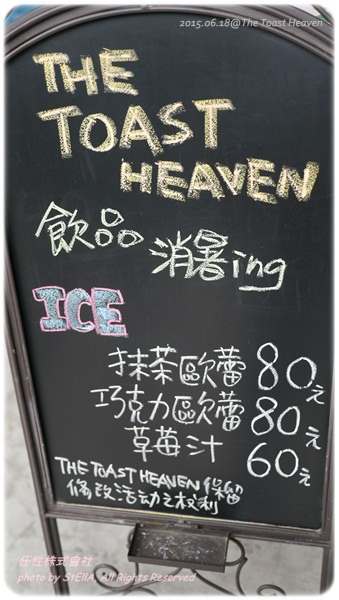 2015.06.18@The Toast Heaven
THE
TOAST
HEAVEN
飲品
消暑ing
ICE
抹茶歐蕾 80元
巧克力歐蕾 80元
草莓汁 60元
THE TOAST HEAVEN 保留
修改活动之权利
任性株式會社
photo by StEllA, All Rights Reserved